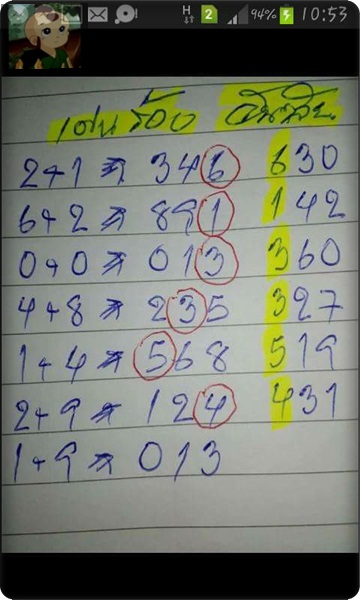 H 2 94% 10:53
เด่น รอง
2+1 = 346 630
6+2 = 891 142
0+0 = 013 360
4+8 = 235 327
1+4 = 568 519
2+9 = 124 431
1+9 = 013